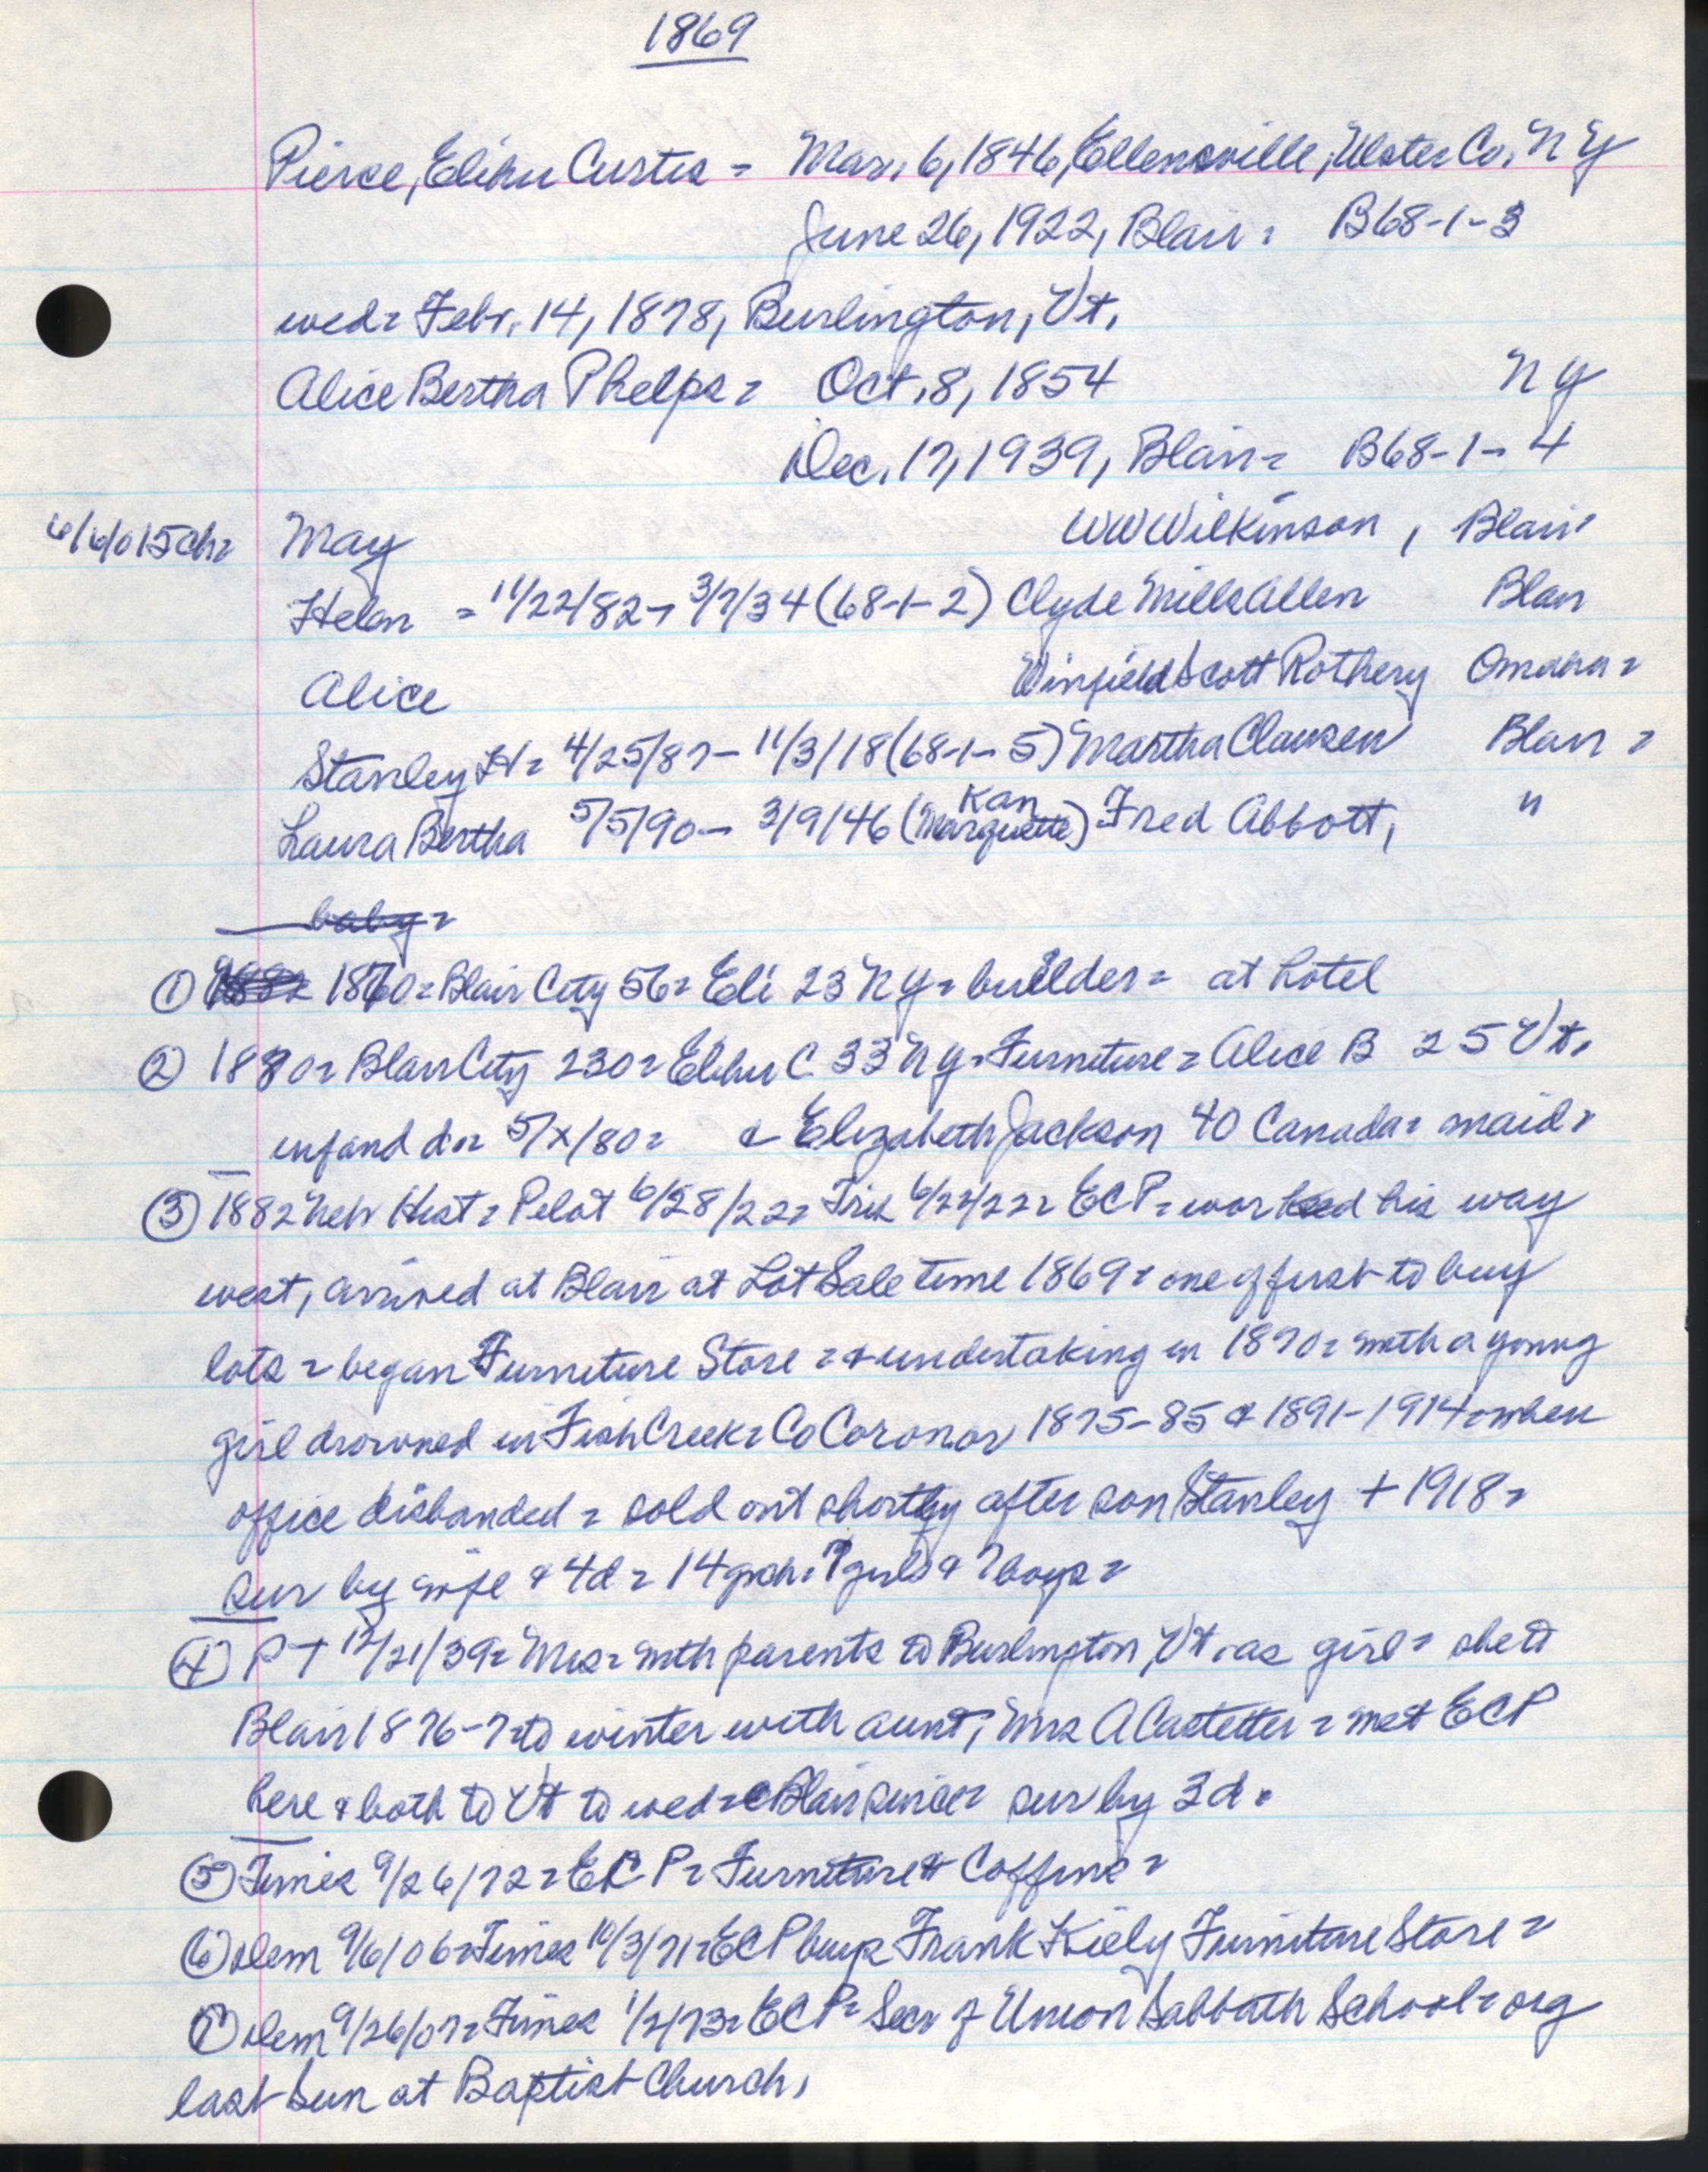 1869
Pierce, Elihu Curtis = Mar. 6, 1846, Ellensville, Ulster Co. N Y
June 26, 1922, Blair = B68-1-3
wed = Febr. 14, 1878, Burlington, Vt.
Alice Bertha Phelps = Oct. 8, 1854 N Y
Dec. 17, 1939, Blair = B68-1-4
ch = May W W Wilkinson, Blair
Helen = 11/22/82 - 3/7/34 (68-1-2) Clyde Mills Allen Blair
Alice Winfield Scott Rothery Omaha =
Stanley H = 4/25/87 - 11/3/18 (68-1-5) Martha Clausen Blair =
Laura Bertha 5/5/90 - 3/9/46 (Marquette Kan) Fred Abbott, "
baby =
① 1870 = Blair City 56 = Eli 23 N Y = builder = at hotel
② 1880 = Blair City 230 = Elihu C 33 N Y = Furniture = Alice B 25 Vt.
infand da = 5/x/80 = & Elizabeth Jackson 40 Canada = maid =
③ 1882 Neb Hist = Pilot 6/28/22 = Trib 6/29/22 = E C P = worked his way
west, arrived at Blair at Lot Sale time 1869 = one of first to buy
lots = began Furniture Store = & undertaking in 1870 = with a young
girl drowned in Fish Creek = Co Coronor 1875-85 & 1891-1914 = when
office disbanded = sold out shortly after son Stanley + 1918 =
sur by wife & 4 d = 14 grch = 7 girls & 7 boys =
④ P T 12/21/39 = Mrs = with parents to Burlington, Vt. as girl = she to
Blair 1876-7 = to winter with aunt, Mrs A Castetter = met E C P
here & both to Vt to wed = Blair since = sur by 3 d.
⑤ Times 9/26/72 = E C P = Furniture & Coffins =
⑥ Dem 9/6/06 = Times 10/3/71 = E C P buys Frank Kiely Furniture Store =
⑦ Dem 9/26/07 = Times 1/2/73 = E C P = Secr of Union Sabbath School = org
last Sun at Baptist Church,